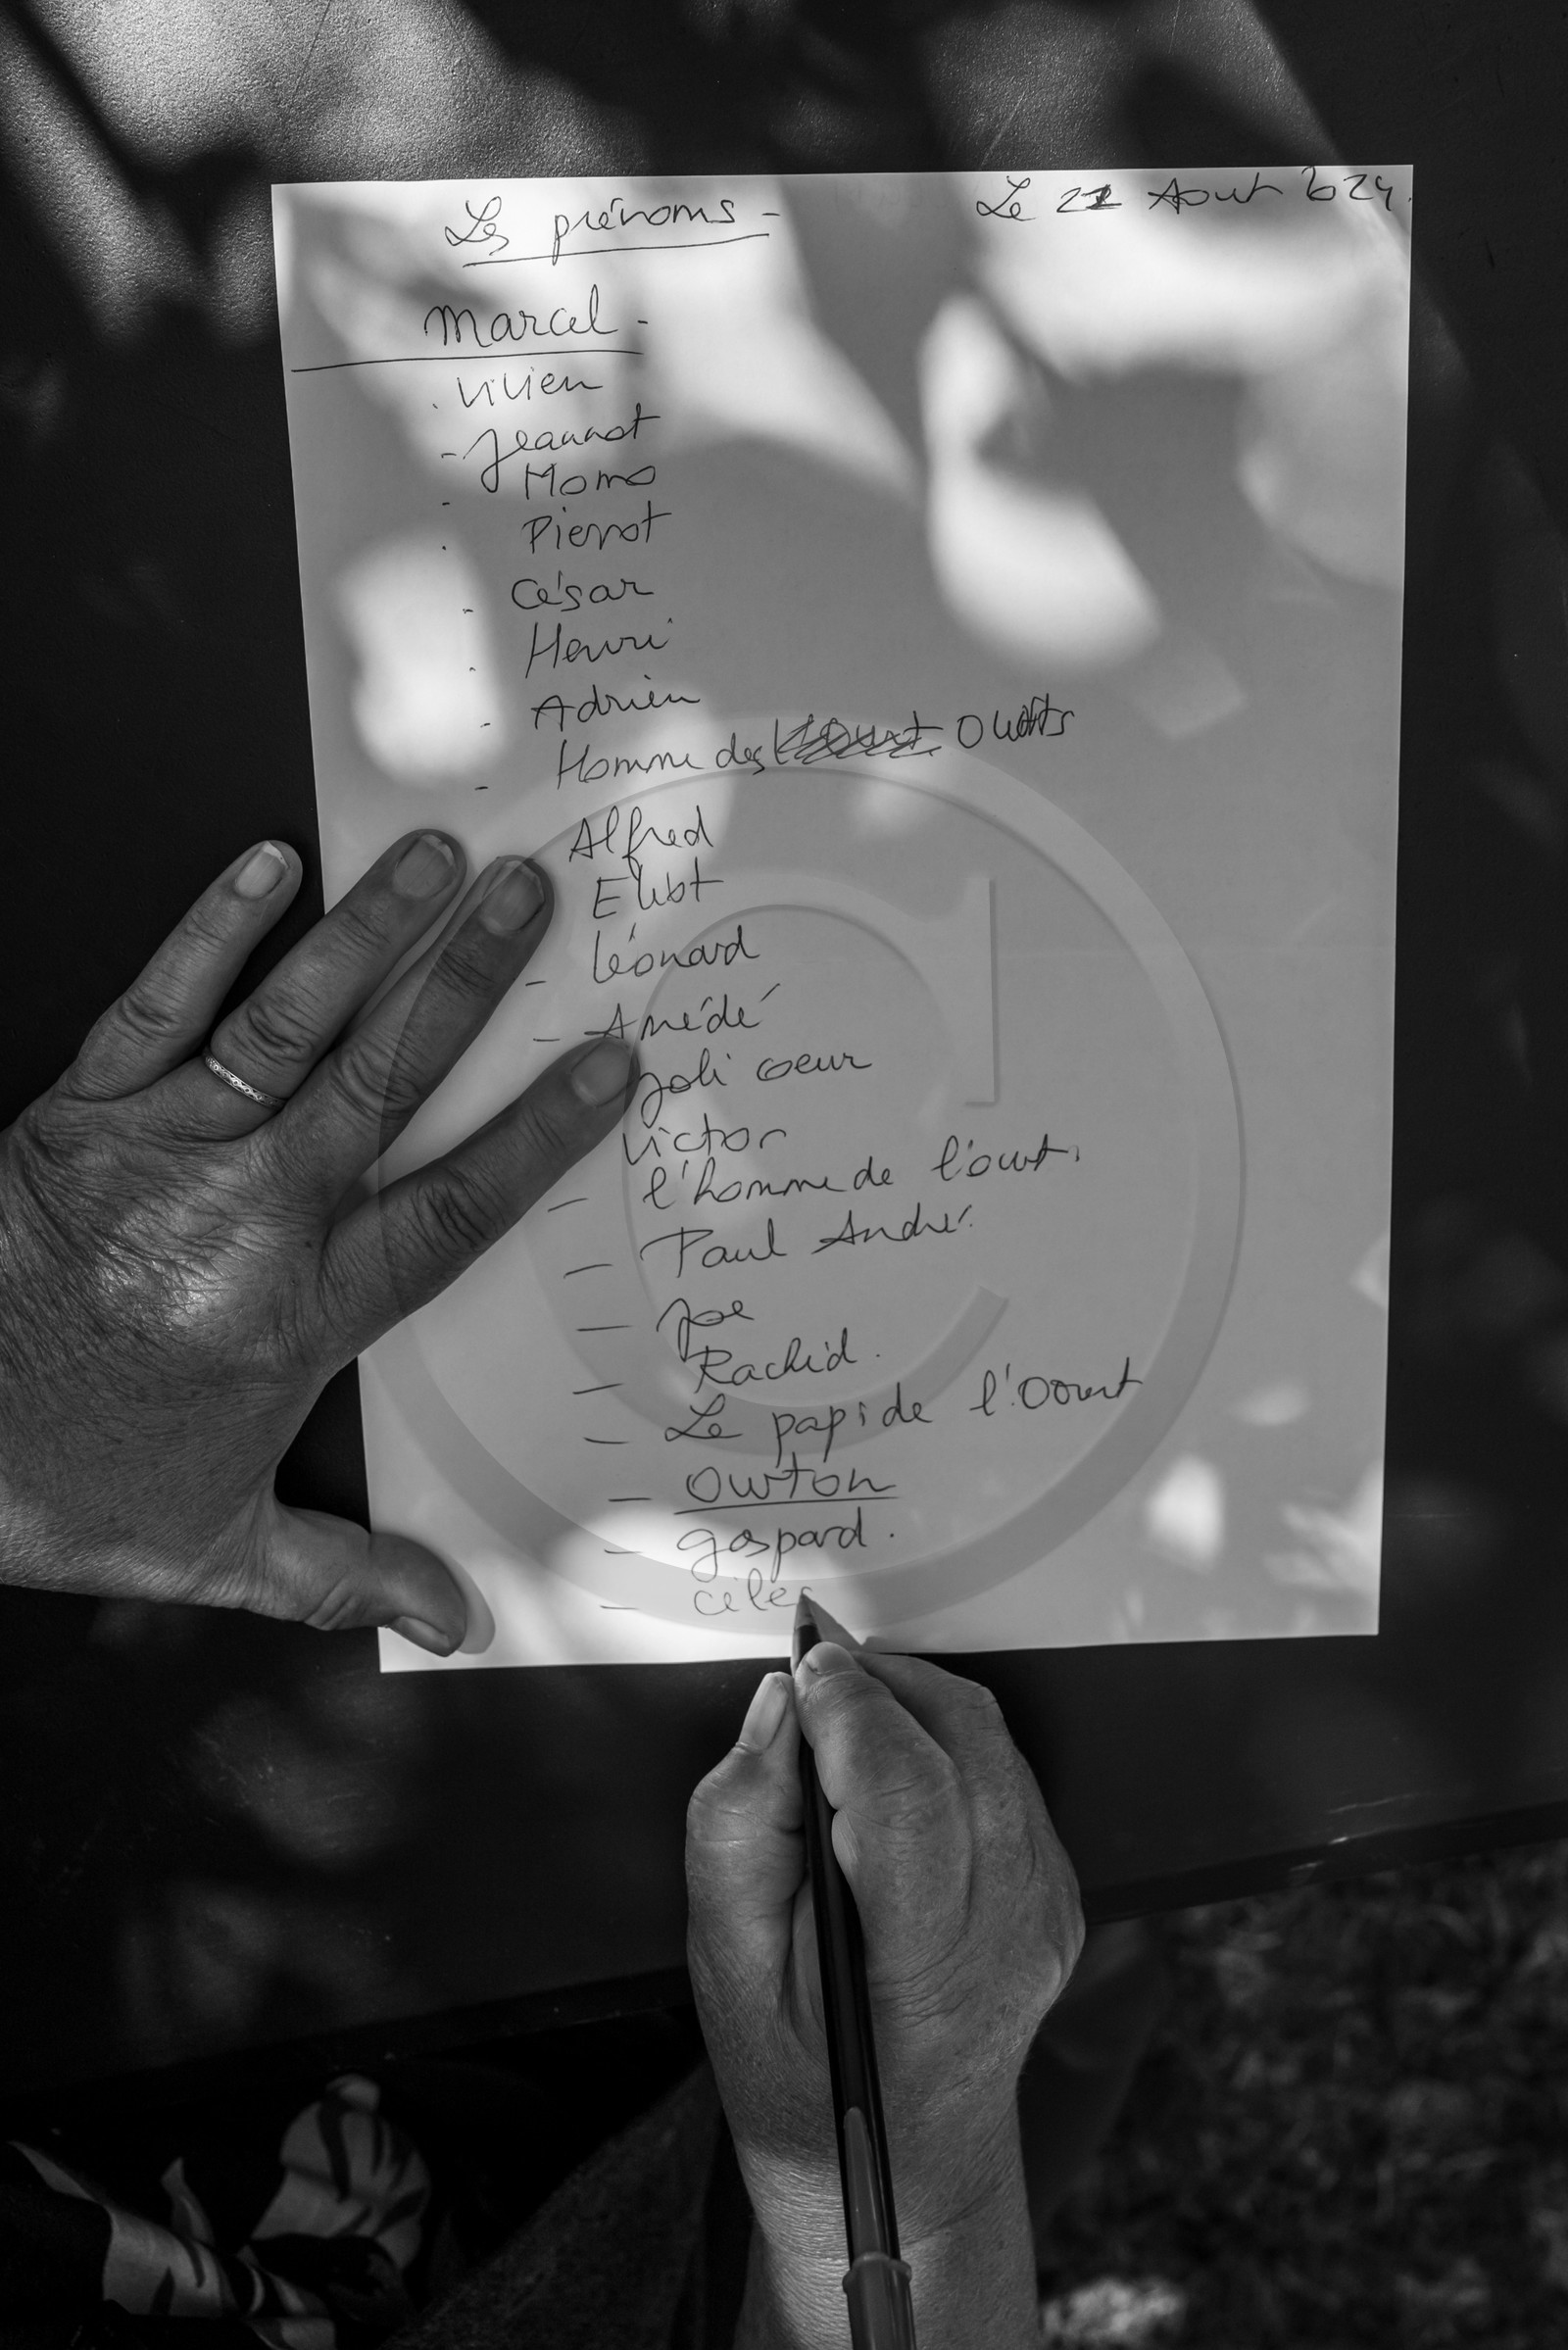 Les prénoms - Le 22 Aout 2024.
Marcel -
. Vivien
- Jeannot
- Momo
. Pierrot
- César
- Henri
- Adrien
- Homme des
Alfred
Eliot
- Léonard
- Amédé
Joli coeur
Victor
- l'homme de l'ourt.
- Paul André.
- Joe
- Rachid.
- Le papi de l'Oourt
- Owton
- gaspard.
- céles